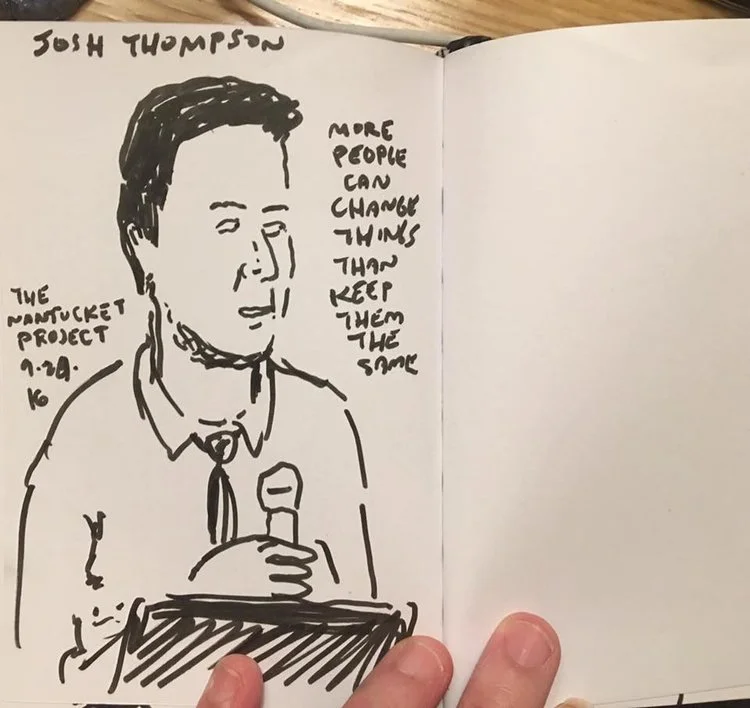 JOSH THOMPSON
MORE
PEOPLE
CAN
CHANGE
THINGS
THAN
KEEP
THEM
THE
SAME
THE
NANTUCKET
PROJECT
9.24.
16